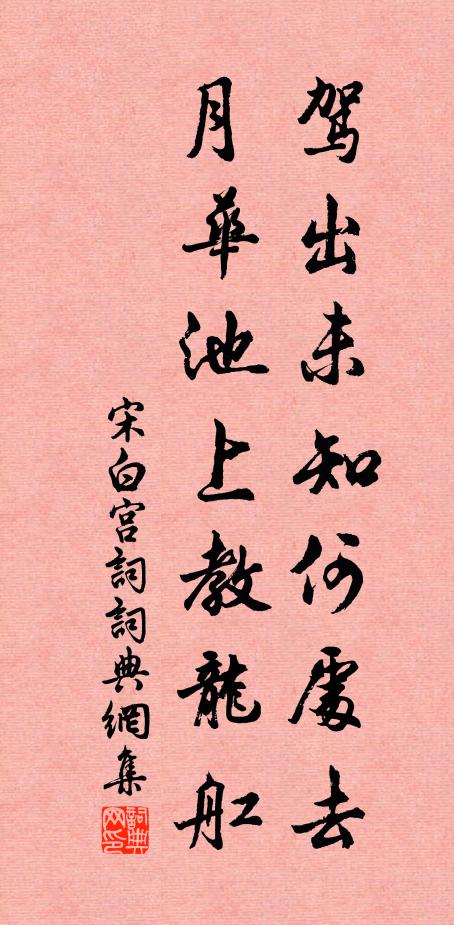 駕出未知何處去
月華池上教龍舡
宋白宮詞詞典網集
詞典網印